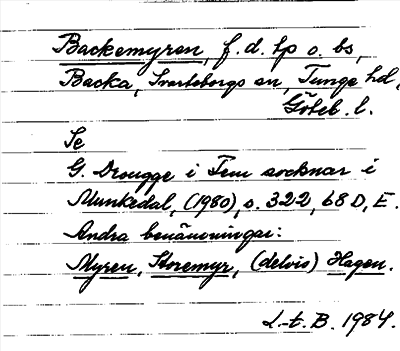 Backemyren, f.d. lp o. bs,
Backa, Svarteborgs sn, Tunge hd,
Göteb. l.
Se
G. Drougge i Fem socknar i
Munkedal, (1980), s. 322, 68 D, E.
Andra benämningar:
Myren, Storemyr, (delvis) Hagen.
L-t. B. 1984.